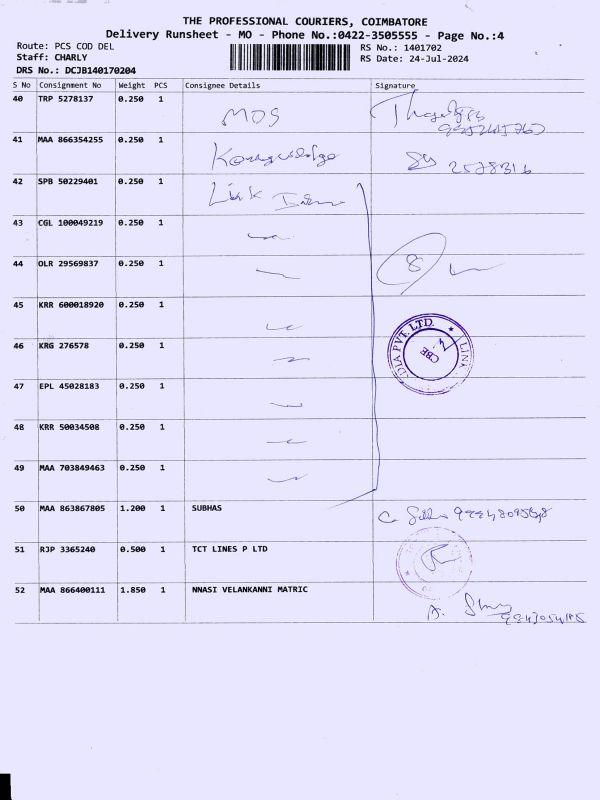 THE PROFESSIONAL COURIERS, COIMBATORE
Delivery Runsheet - MO - Phone No.:0422-3505555 - Page No.:4
Route: PCS COD DEL
RS No.: 1401702
Staff: CHARLY
RS Date: 24-Jul-2024
DRS No.: DCJB140170204
S No Consignment No Weight PCS Consignee Details Signature
40 TRP 5278137 0.250 1 MOS
41 MAA 866354255 0.250 1
42 SPB 50229401 0.250 1 Link
43 CGL 100049219 0.250 1
44 OLR 29569837 0.250 1 8
45 KRR 600018920 0.250 1
46 KRG 276578 0.250 1
PVT. LTD. * LINK
CBE
47 EPL 45028183 0.250 1
48 KRR 50034508 0.250 1
49 MAA 703849463 0.250 1
50 MAA 863867805 1.200 1 SUBHAS
51 RJP 3365240 0.500 1 TCT LINES P LTD
52 MAA 866400111 1.850 1 NNASI VELANKANNI MATRIC